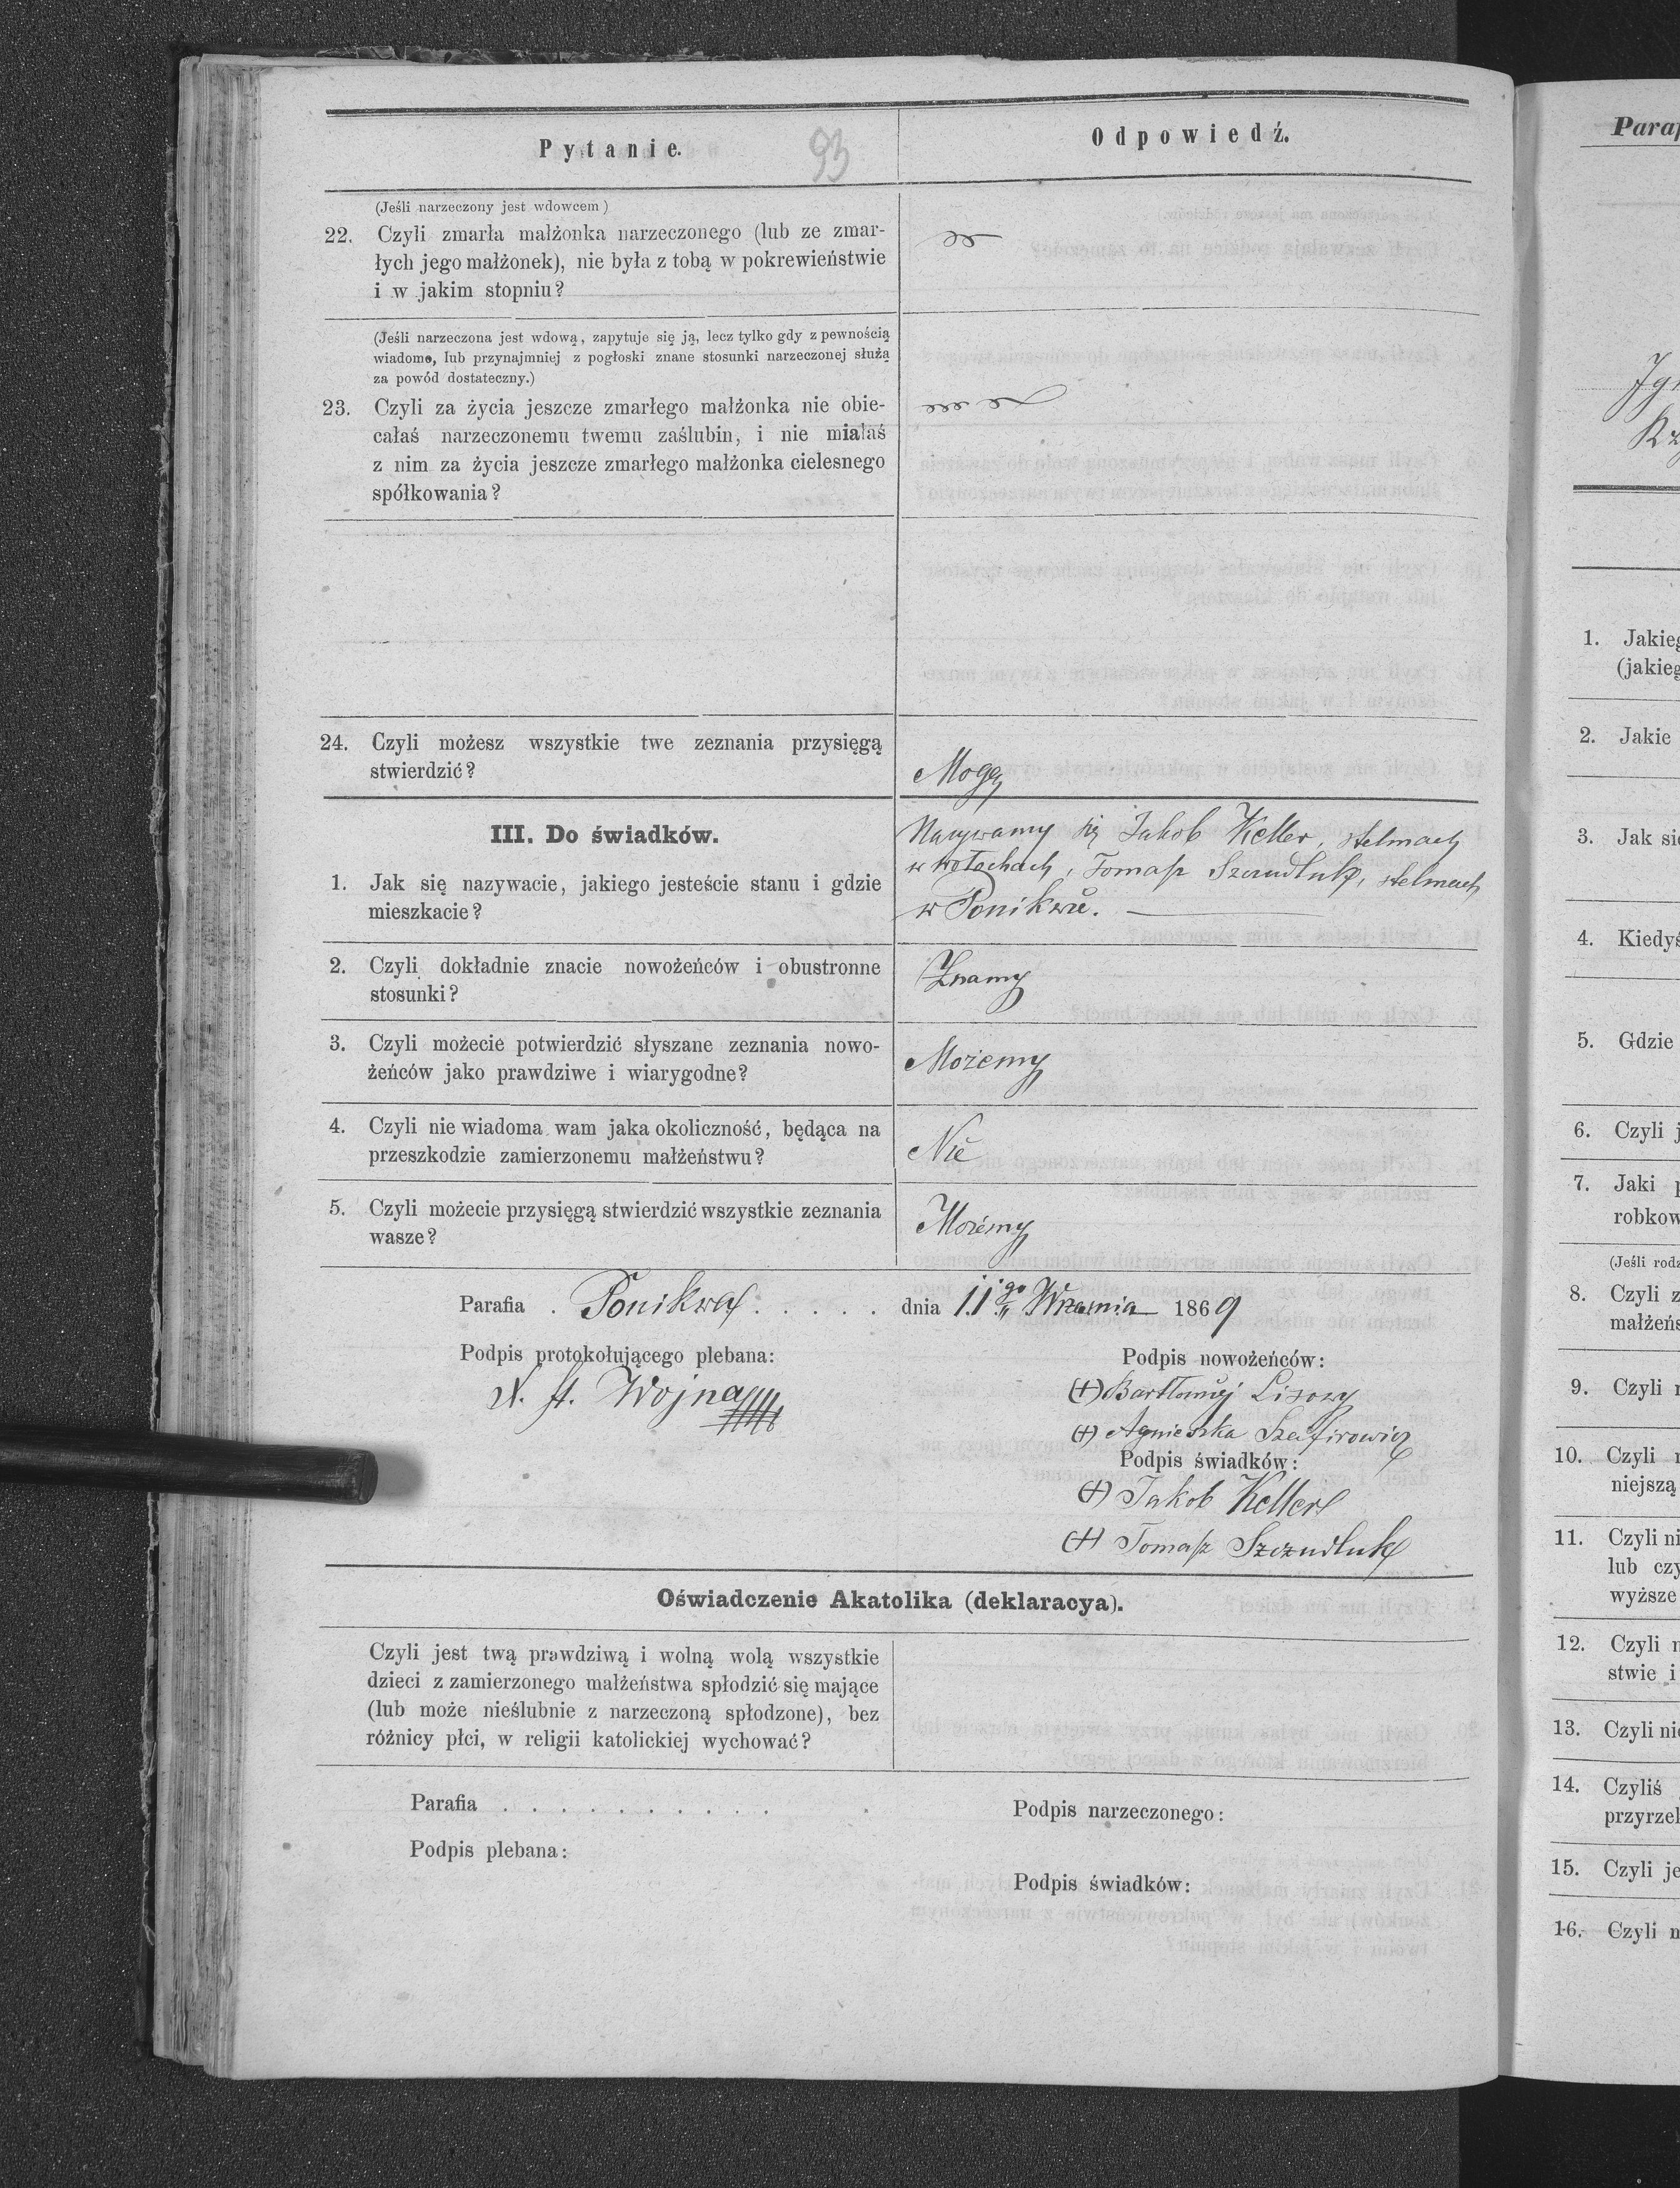 Pytanie.
93
Odpowiedź.
(Jeśli narzeczony jest wdowcem)
22. Czyli zmarła małżonka narzeczonego (lub ze zmar-
łych jego małżonek), nie była z tobą w pokrewieństwie
i w jakim stopniu?
(Jeśli narzeczona jest wdową, zapytuje się ją, lecz tylko gdy z pewnością
wiadome, lub przynajmniej z pogłoski znane stosunki narzeczonej służą
za powód dostateczny.)
23. Czyli za życia jeszcze zmarłego małżonka nie obie-
całaś narzeczonemu twemu zaślubin, i nie miałaś
z nim za życia jeszcze zmarłego małżonka cielesnego
spółkowania?
24. Czyli możesz wszystkie twe zeznania przysięgą
stwierdzić?
Mogę
III. Do świadków.
1. Jak się nazywacie, jakiego jesteście stanu i gdzie
mieszkacie?
Nazywamy się Jakob Keller, stelmach
w Wołochach, Tomasz Szczudluk, stelmach
w Ponikwie.
2. Czyli dokładnie znacie nowożeńców i obustronne
stosunki?
Znamy
3. Czyli możecie potwierdzić słyszane zeznania nowo-
żeńców jako prawdziwe i wiarygodne?
Możemy
4. Czyli nie wiadoma wam jaka okoliczność, będąca na
przeszkodzie zamierzonemu małżeństwu?
Nie
5. Czyli możecie przysięgą stwierdzić wszystkie zeznania
wasze?
Możemy
Parafia . Ponikwa . . . . . dnia 11go Września 1869
Podpis protokołującego plebana:
Wojna
Podpis nowożeńców:
(+) Bartłomiej Lisowy
(+) Agnieszka Szafirowicz
Podpis świadków:
(+) Jakob Keller
(+) Tomasz Szczudluk
Oświadczenie Akatolika (deklaracya).
Czyli jest twą prawdziwą i wolną wolą wszystkie
dzieci z zamierzonego małżeństwa spłodzić się mające
(lub może nieślubnie z narzeczoną spłodzone), bez
różnicy płci, w religii katolickiej wychować?
Parafia . . . . . . . . . .
Podpis narzeczonego:
Podpis plebana:
Podpis świadków:
Paraf
Ign
1. Jakieg
(jakieg
2. Jakie
3. Jak się
4. Kiedyś
5. Gdzie
6. Czyli j
7. Jaki p
robkow
(Jeśli rodz
8. Czyli z
małżeńs
9. Czyli n
10. Czyli n
niejszą
11. Czyli ni
lub czy
wyższe
12. Czyli n
stwie i
13. Czyli nie
14. Czyliś
przyrzek
15. Czyli je
16. Czyli n